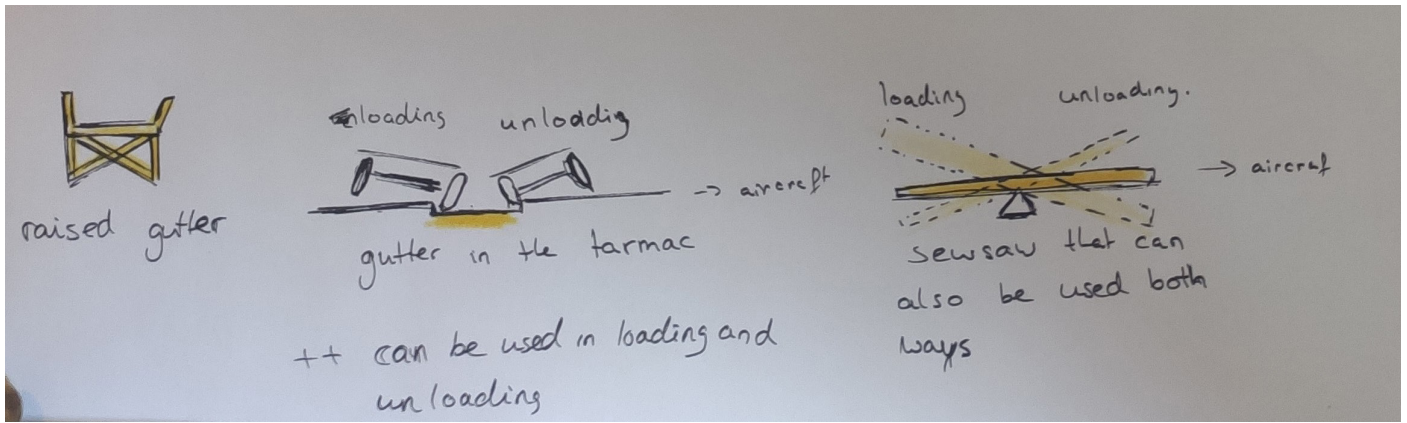 raised gutter
loading unloadig
-> aircreft
gutter in the tarmac
++ can be used in loading and
unloading
loading unloading.
-> aircraf
sewsaw that can
also be used both
ways